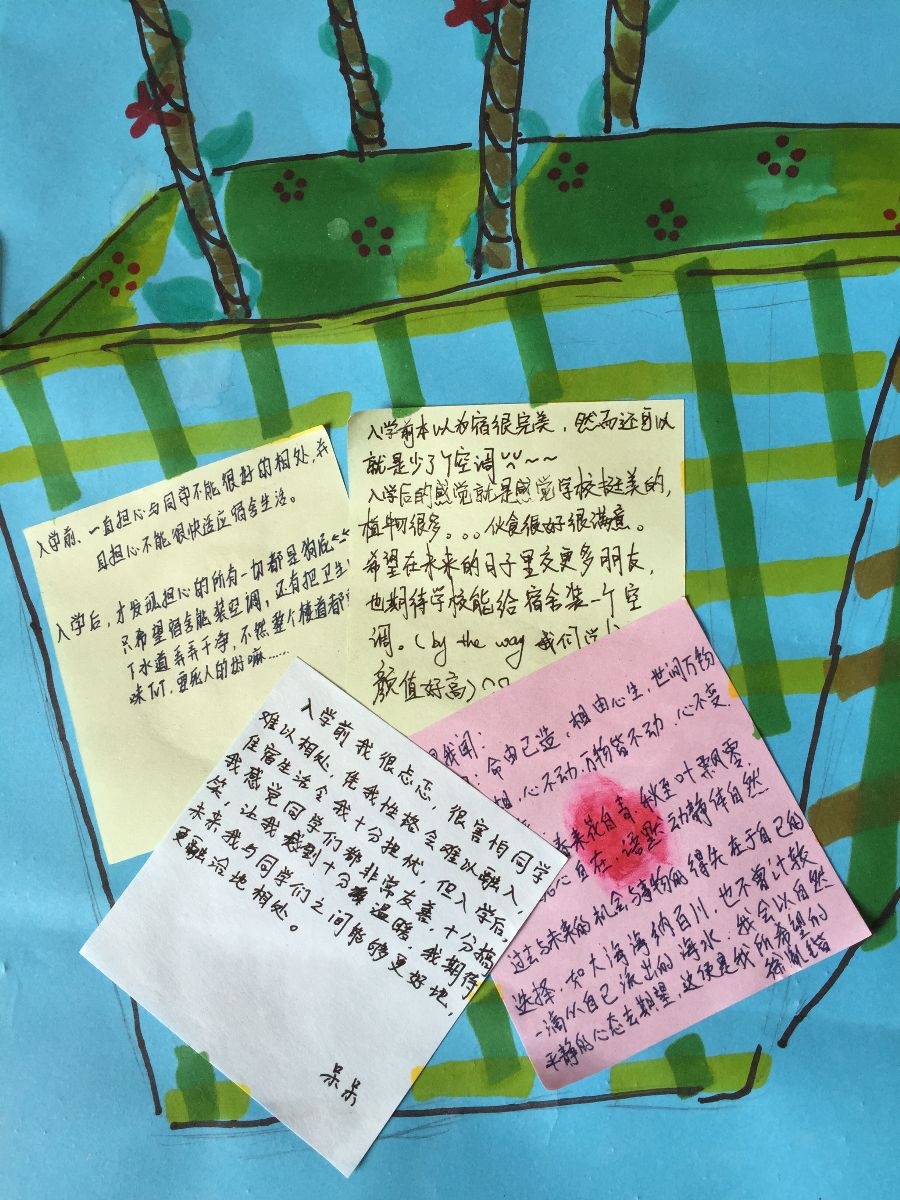 入学前,一直担心与同学不能很好的相处,并
且担心不能很快适应宿舍生活。
入学后,才发现担心的所有一切都是狗屁
只希望宿舍能装空调,还有把卫生
下水道弄弄干净,不然整个楼道都
味TVT,要死人的好嘛……
入学前本以为宿很完美,然而还可以
就是少了个空调~~
入学后的感觉就是感觉学校挺美的,
植物很多。。。伙食很好很满意。
希望在未来的日子里交更多朋友,
也期待学校能给宿舍装一个空
调。(by the way 我们学
颜值好高)
入学前我很忐忑,很害怕同学
难以相处,凭我性格会难以融入,
住宿生活令我十分担忧,但入学后,
我感觉同学们都非常友善,十分搞
笑,让我感到十分温暖,我期待
未来我与同学们之间能够更好地,
更融洽地相处。
呆呆
是我闻:
:命由己造,相由心生,世间万物
相,心不动,万物皆不动,心不变,
春来花自青,秋至叶飘零,
心自在,语默动静体自然
过去与未来的机会与事物的得失在于自己的
选择,如大海海纳百川,也不曾计较
一滴从自己流出的海水,我会以自然
平静的心态去期望,这便是我所希望的